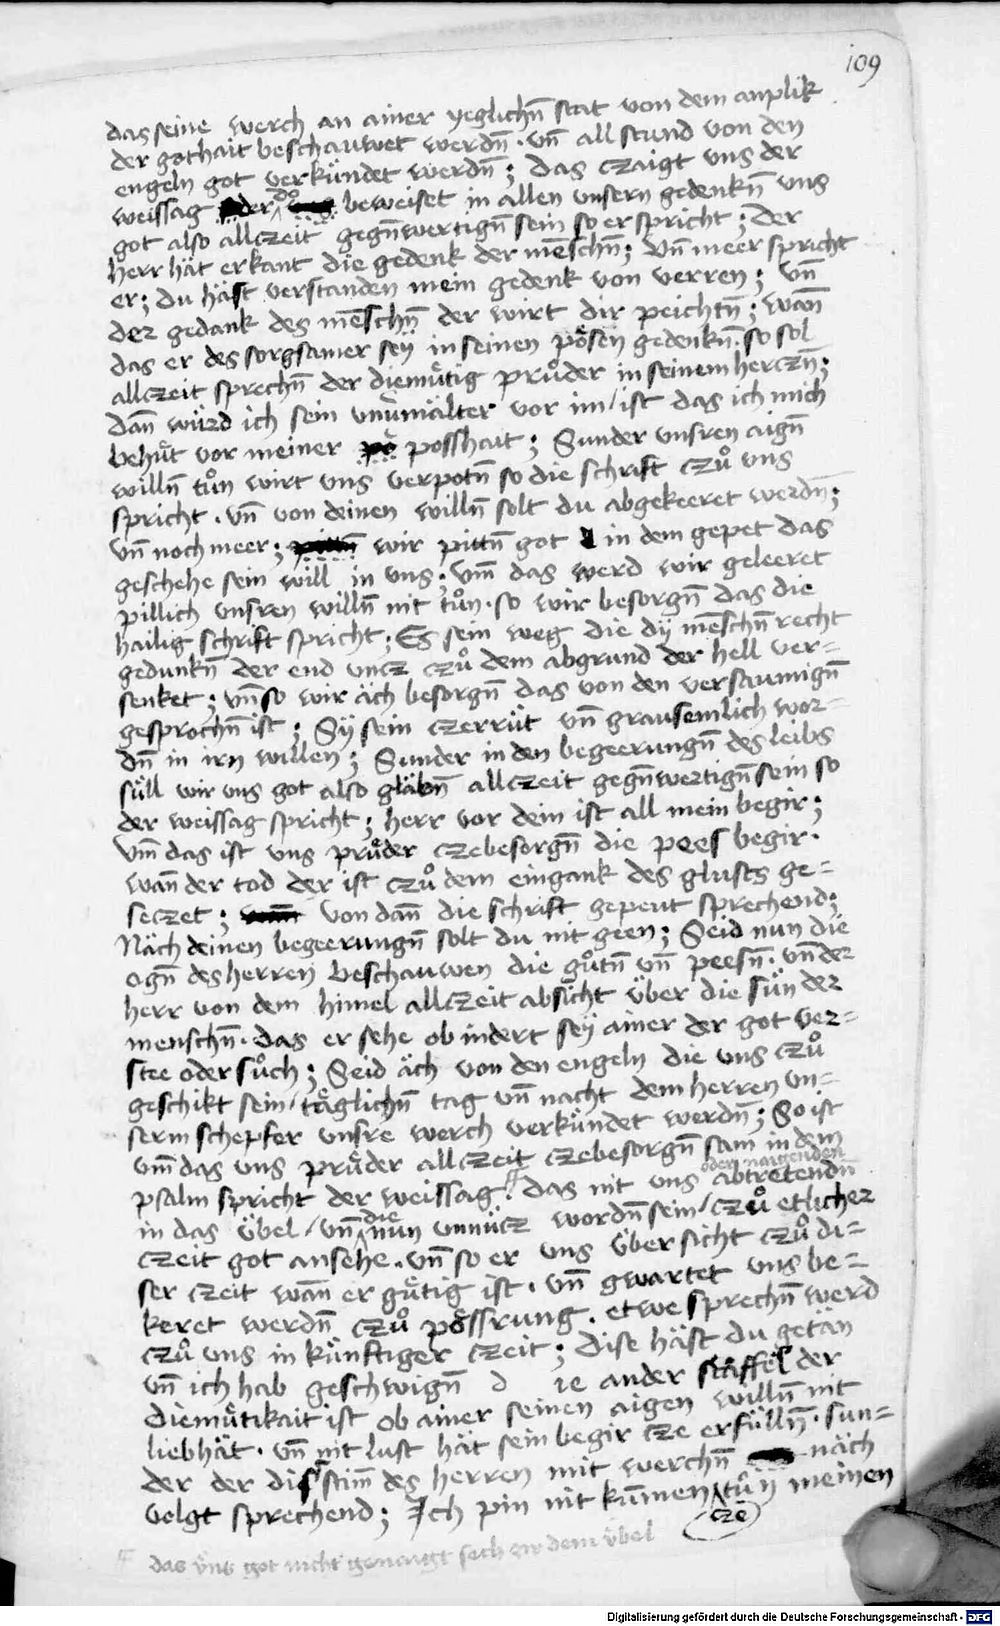 109
das seine werch an ainer yeglichn̄ stat von dem anplik
der gothait beschauwet werdn̄ . vn̄ all stund von den
engeln got verkündet werdn̄ ; das czaigt vns der
weissag der do beweiset in allen vnsern gedenkn̄ vns
got also allczeit gegn̄wertign̄ sein so er spricht ; Der
herr hät erkant die gedenk der mēschn̄ ; Vn̄ meer spricht
er ; du häst verstanden mein gedenk von verren ; vn̄
der gedank des mēschn̄ der wirt dir peichtn̄ ; wan̄
das er des sorgsamer seÿ in seinen pösen gedenkn̄ . so sol
allczeit sprechn̄ der diemütig průder in seinem herczn̄ ;
dan̄ würd ich sein vnuermälter vor im / ist das ich mich
behüt vor meiner posshait ; Sunder vnsren aign̄
willn̄ tůn wirt vns verpotn̄ so die schrift czů vns
spricht . vn̄ von deinen willn̄ solt du abgekeeret werdn̄ ;
vn̄ noch meer ; wir pittn̄ got in dem gepet das
geschehe sein will in vns ; vm̄ das werd wir geleeret
pillich vnsren willn̄ nit tůn . so wir besorgn̄ das die
hailig schrift spricht ; Es sein weg die dÿ mēschn̄ recht
gedunkn̄ der end vncz czů dem abgrund der hell ver=
senket ; vn̄ so wir äch besorgn̄ das von den versaumign̄
gesprochn̄ ist ; Sÿ sein czerrüt vn̄ grausemlich wor=
dn̄ in irn willen ; Sunder in den begeerungn̄ des leibs
süll wir vns got also gläbn̄ allczeit gegn̄wertign̄ sein so
der weissag spricht ; herr vor dein ist all mein begir ;
Vm̄ das ist vns prüder czebesorgn̄ die pees begir .
wan̄ der tod der ist czů dem eingank des glusts ge=
seczet ; von dan̄ die schrift gepeut sprechend ;
Näch deinen begeerungn̄ solt du nit geen ; Seid nun die
ogn̄ des herren beschauwen die gůtn̄ vn̄ peesn̄ . vn̄ der
herr von dem himel allczeit absicht über die sün der
menschn̄ . das er sehe ob indert seÿ ainer der got ver=
stee oder sůch ; Seid äch von den engeln die vns czů
geschikt sein / täglichn̄ tag vn̄ nacht dem herren vn=
serm schepfer vnsre werch verkündet werdn̄ ; So ist
vm̄ das vns prüder allczeit czebesorgn̄ sam in dem
oder naigenden
psalm spricht der weissag . das nit vns abtretendn̄
in das übel / vn̄ die nun vnnücz wordn̄ sein / czů etlicher
czeit got ansehe . vn̄ so er vns über sicht czů di=
ser czeit wan̄ er gütig ist . vn̄ gwartet vns be=
keret werdn̄ czů pössrung . etwe sprechn̄ werd
czů vns in künftiger czeit ; dise häst du getän
vn̄ ich hab geschwign̄ d ie ander staffel der
diemütikait ist ob ainer seinen aigen willn̄ nit
liebhät . vn̄ nit lust hät sein begir cze erfülln̄ . sun=
der der stim̄ des herren mit werchn̄ näch
volgt sprechend ; Ich pin nit kum̄en cze tůn meinen
das vns got nicht genaigt sech zw dem übel
Digitalisierung gefördert durch die Deutsche Forschungsgemeinschaft - DFG